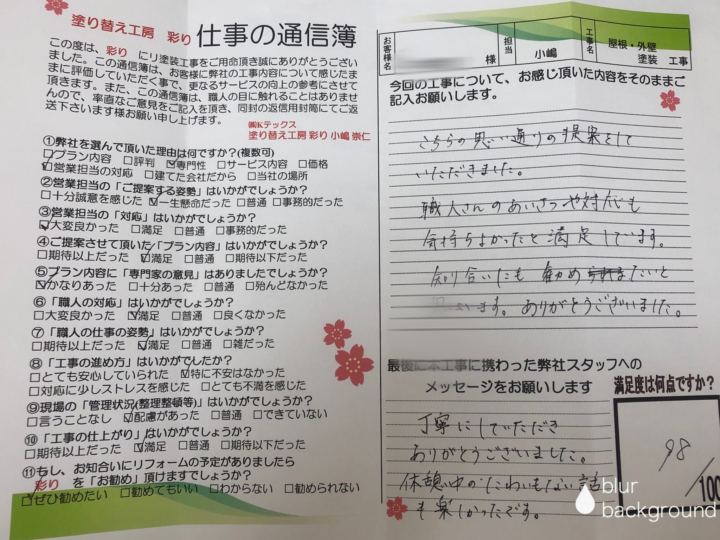 塗り替え工房 彩り 仕事の通信簿
この度は、彩り にリ塗装工事をご用命頂き誠にありがとうござい
ました。この通信簿は、お客様に弊社の工事内容について感じたま
まに評価していただく事で、更なるサービスの向上の参考にさせて
頂きます。また、この通信簿は、職人の目に触れることはありませ
んので、率直なご意見をご記入を頂き、同封の返信用封筒にてご返
送下さいます様お願い申し上げます。
㈱Kテックス
塗り替え工房 彩り 小嶋 崇仁
①弊社を選んで頂いた理由は何ですか?(複数可)
☑プラン内容 □評判 ☑専門性 □サービス内容 □価格
☑営業担当の対応 □建てた会社だから □当社の場所
②営業担当の「ご提案する姿勢」はいかがでしょうか?
□十分誠意を感じた ☑一生懸命だった □普通 □事務的だった
③営業担当の「対応」はいかがでしょうか?
☑大変良かった □満足 □普通 □事務的だった
④ご提案させて頂いた「プラン内容」はいかがでしょうか?
□期待以上だった ☑満足 □普通 □期待以下だった
⑤プラン内容に「専門家の意見」はありましたでしょうか?
☑かなりあった □十分あった □普通 □殆んどなかった
⑥「職人の対応」はいかがでしょうか?
□大変良かった ☑満足 □普通 □良くなかった
⑦「職人の仕事の姿勢」はいかがでしょうか?
□期待以上だった ☑満足 □普通 □雑だった
⑧「工事の進め方」はいかがでしたか?
□とても安心していられた ☑特に不安はなかった
□対応に少しストレスを感じた □とても不満を感じた
⑨現場の「管理状況(整理整頓等)」はいかがでしょうか?
□言うことなし ☑配慮があった □普通 □できていない
⑩「工事の仕上がり」はいかがでしょうか?
□期待以上だった ☑満足 □普通 □期待以下だった
⑪もし、お知合いにリフォームの予定がありましたら
彩り を「お勧め」頂けますでしょうか?
☑ぜひ勧めたい □勧めてもいい □わからない □勧められない
お客様名 様 担当 小嶋 工事名 屋根・外壁 塗装 工事
今回の工事について、お感じ頂いた内容をそのままご
記入お願いします。
こちらの思い通りの提案をして
いただきました。
職人さんのあいさつや対応も
気持ちよかったと満足しています。
知り合いにも勧めたいと
います。ありがとうございました。
最後に本工事に携わった弊社スタッフへの
メッセージをお願いします
満足度は何点ですか?
98
/100
丁寧にしていただき
ありがとうございました。
休憩中のたわいもない話
も楽しかったです。
blur
background